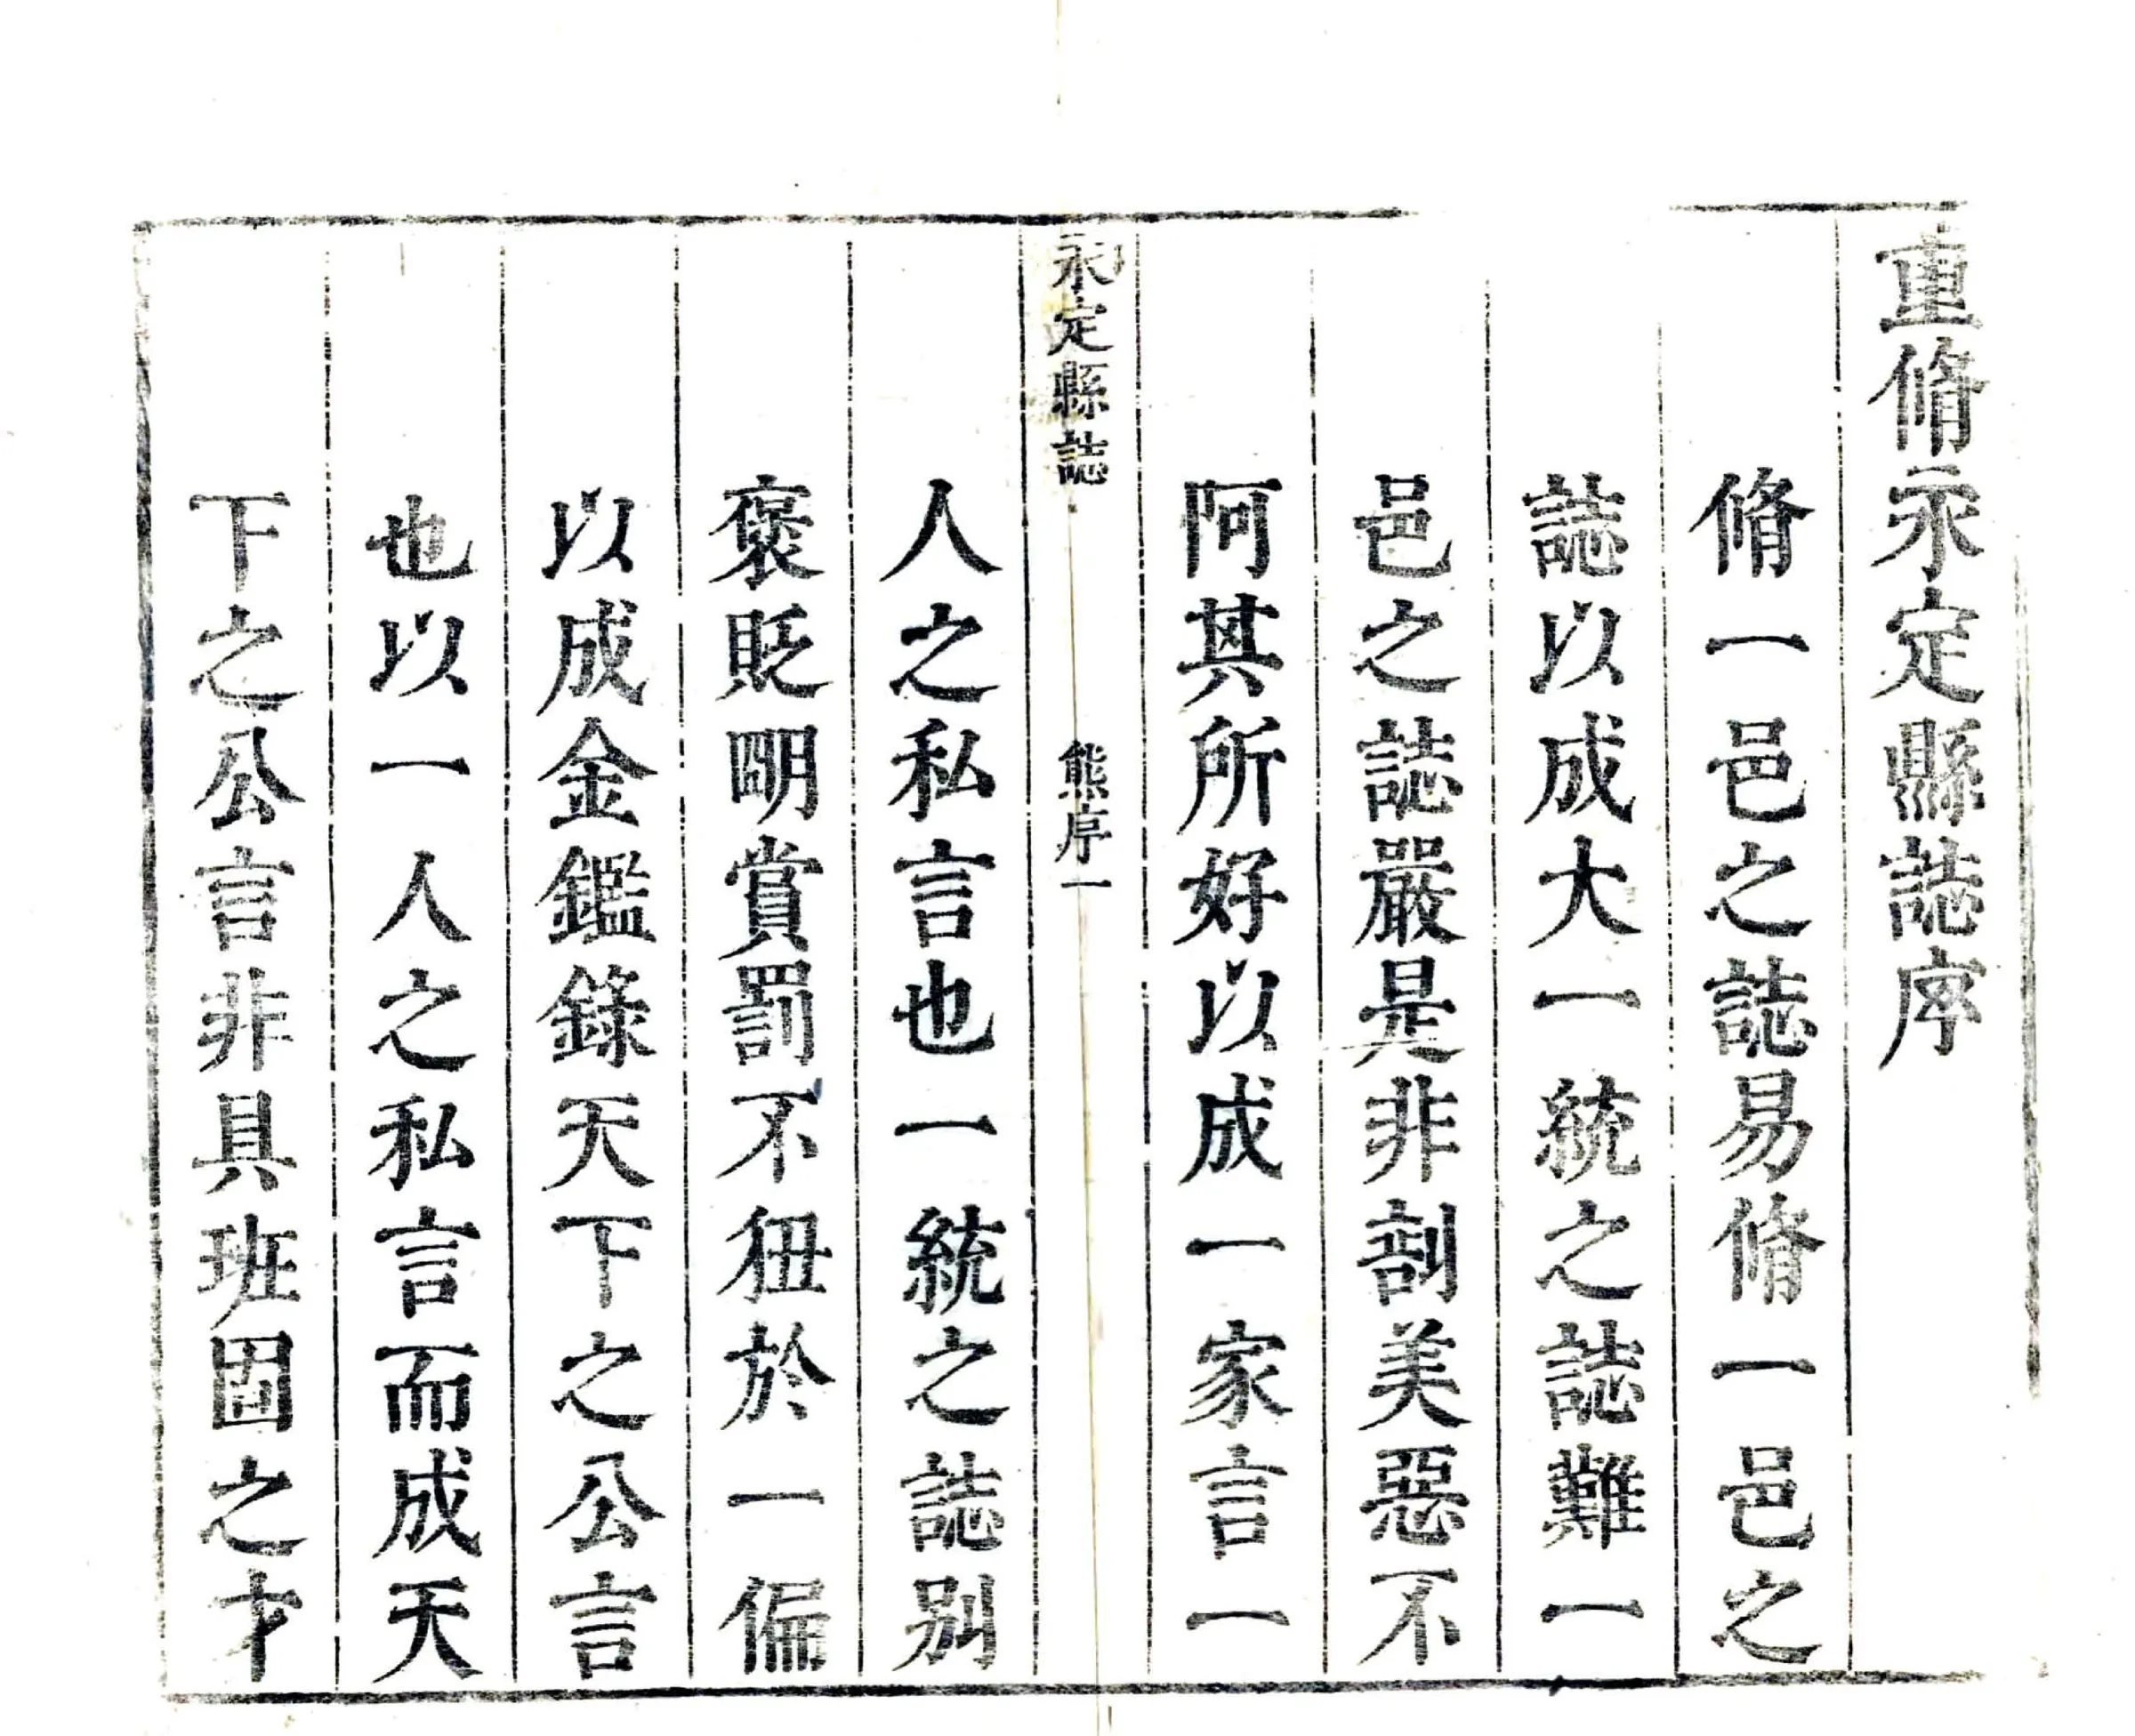 重脩永定縣誌序
脩一邑之誌易脩一邑之
誌以成大一統之誌難一
邑之誌嚴是非剖美惡不
阿其所好以成一家言一
永定縣誌 熊序一
人之私言也一統之誌別
褒貶明賞罰不狃於一偏
以成金鑑錄天下之公言
也以一人之私言而成天
下之公言非具班固之才